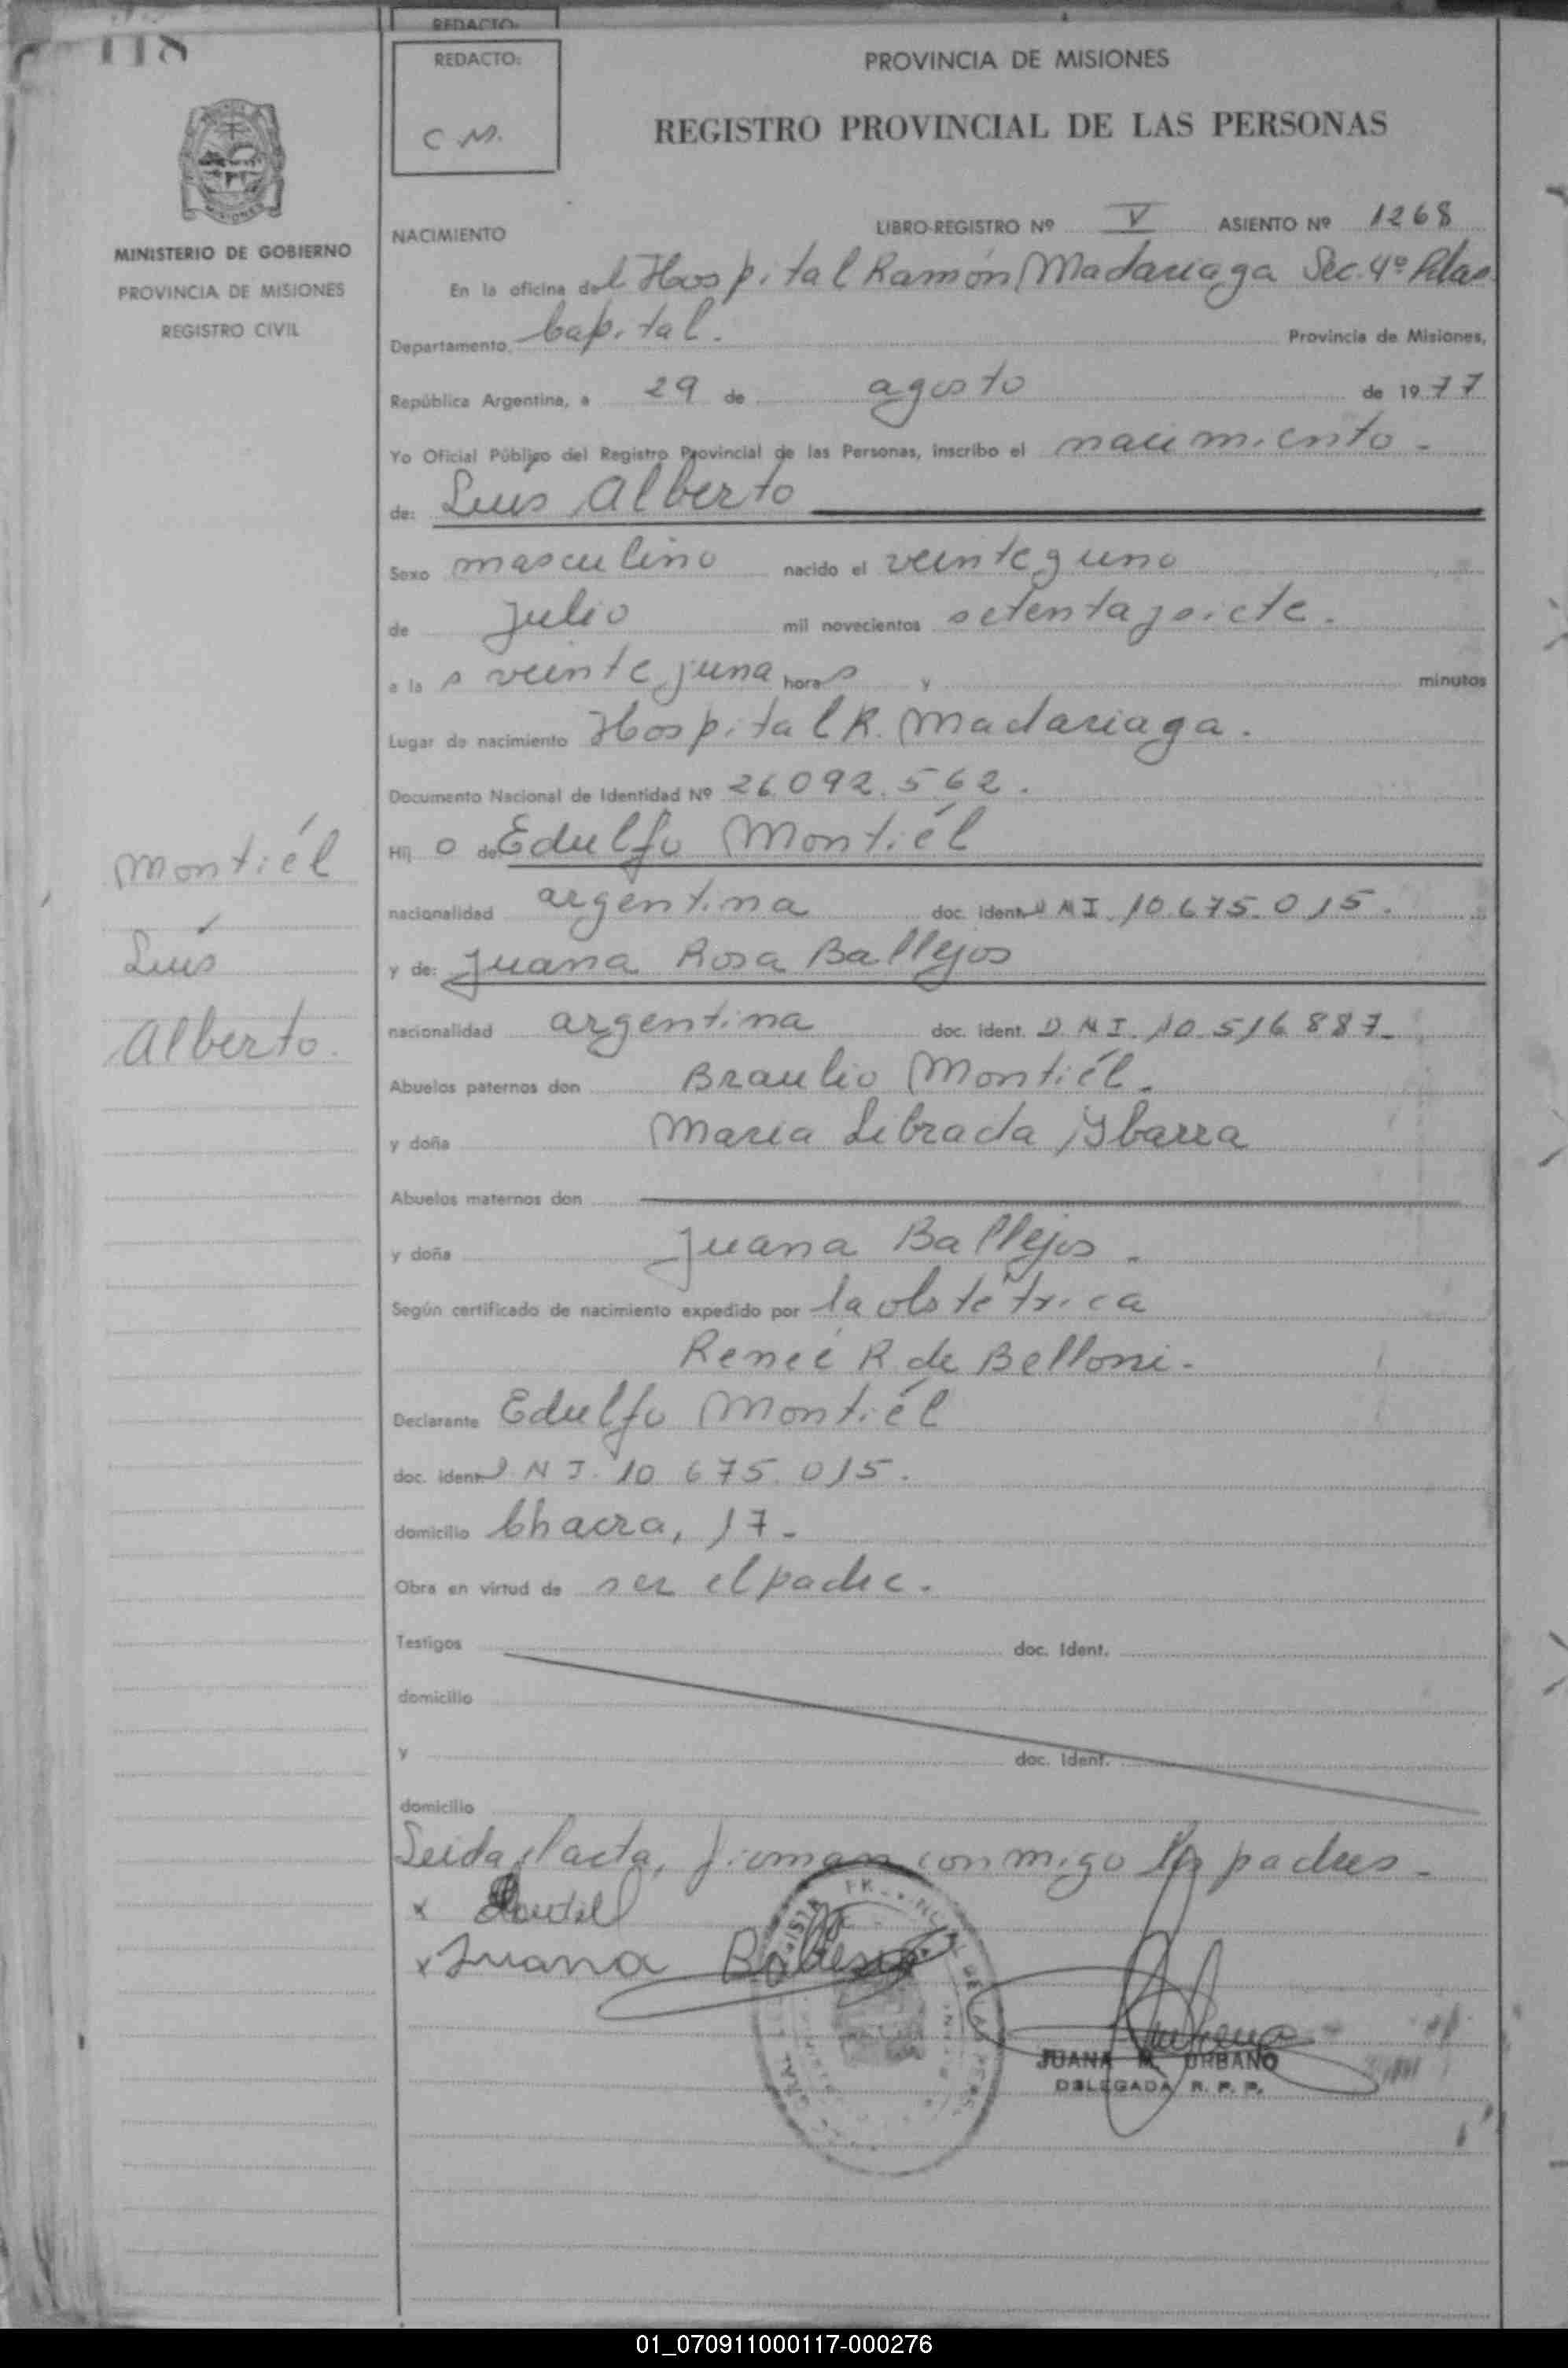 118
REDACTO:
REDACTO:
C M.
PROVINCIA DE MISIONES
REGISTRO PROVINCIAL DE LAS PERSONAS
MINISTERIO DE GOBIERNO
PROVINCIA DE MISIONES
REGISTRO CIVIL
NACIMIENTO LIBRO-REGISTRO Nº V ASIENTO Nº 1268
En la oficina del Hospital Ramón Madariaga Sec. 4º Pdas
Departamento Capital. Provincia de Misiones,
República Argentina, a 29 de agosto de 1977
Yo Oficial Público del Registro Provincial de las Personas, inscribo el nacimiento -
de: Luis Alberto
Sexo masculino nacido el veinteyuno
de julio mil novecientos setentaysiete.
a las veinteyuna horas y minutos
Lugar de nacimiento Hospital R. Madariaga.
Documento Nacional de Identidad Nº 26.092.562.
Hij o de Edulfo Montiél
nacionalidad argentina doc. ident. D N I. 10.675.015.
y de: Juana Rosa Ballejos
nacionalidad argentina doc. ident. D. N I. 10.516.887-
Abuelos paternos don Braulio Montiél.
y doña Maria Librada Ybarra
Abuelos maternos don
y doña Juana Ballejos.
Según certificado de nacimiento expedido por la obstétrica
Reneé R. de Belloni-
Declarante Edulfo Montiél
doc. ident. D. N I. 10 675.015.
domicilio Chacra, 17-
Obra en virtud de ser el padre.
Testigos doc. Ident.
domicilio
y doc. Ident.
domicilio
Leida el acta, firman conmigo los padres-
x
x Juana
JUANA M. URBANO
DELEGADA R. P. P.
Montiél
Luis
Alberto.
01_070911000117-000276